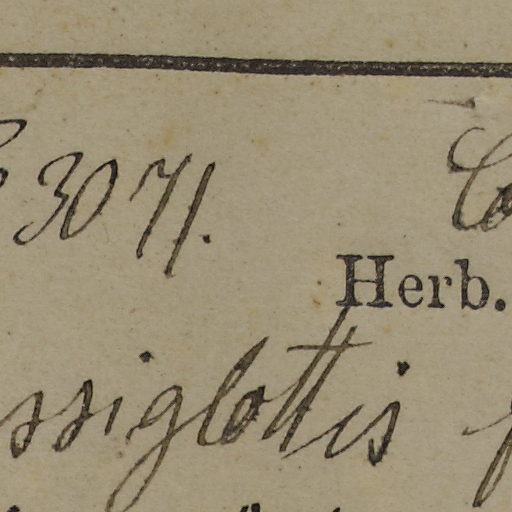 3071.
Herb.
ssiglottis